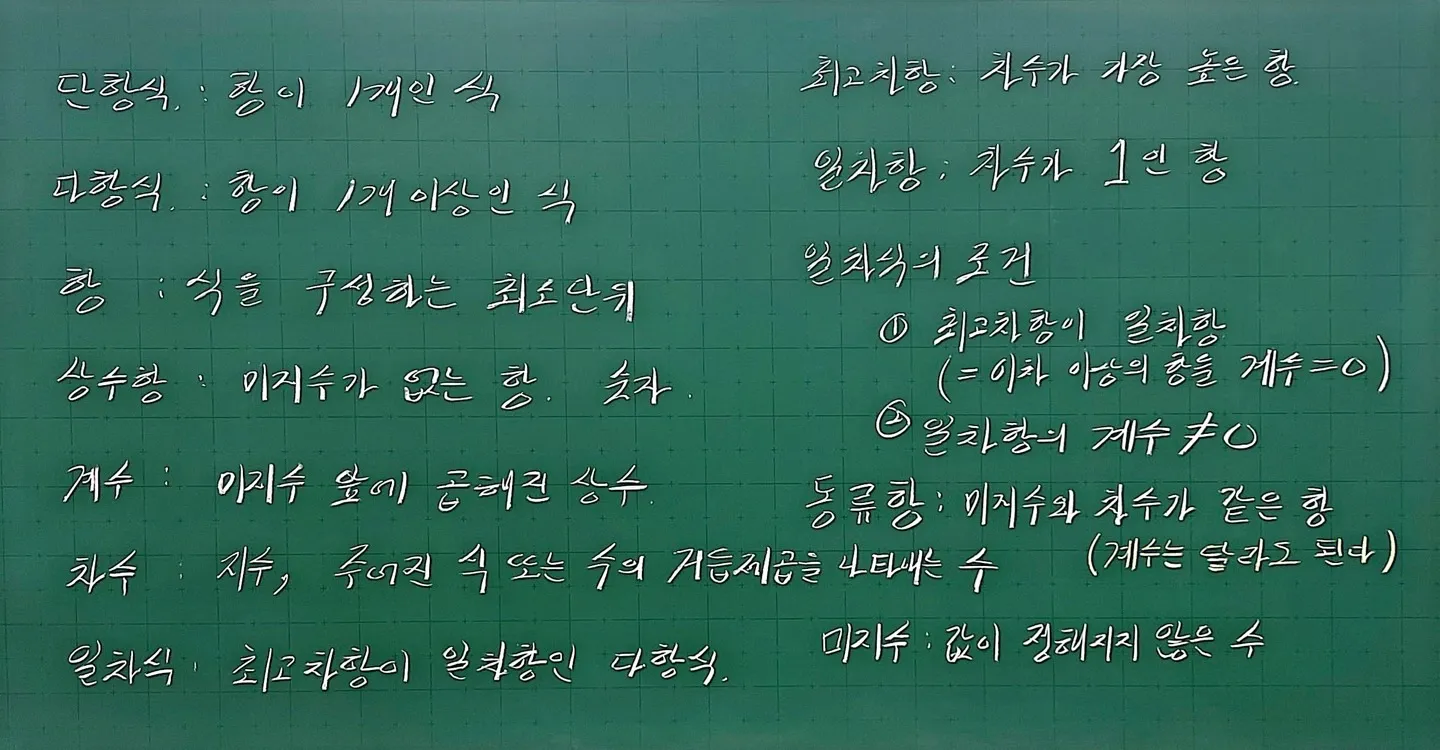 단항식. : 항이 1개인 식
다항식. : 항이 1개 이상인 식
항 : 식을 구성하는 최소단위
상수항 : 미지수가 없는 항. 숫자.
계수 : 미지수 앞에 곱해진 상수.
차수 : 지수, 주어진 식 또는 수의 거듭제곱을 나타내는 수
일차식 : 최고차항이 일차항인 다항식.
최고차항 : 차수가 가장 높은 항.
일차항 : 차수가 1인 항
일차식의 조건
① 최고차항이 일차항
(= 이차 이상의 항들 계수 = 0)
② 일차항의 계수 ≠ 0
동류항 : 미지수와 차수가 같은 항
(계수는 달라도 된다)
미지수 : 값이 정해지지 않은 수